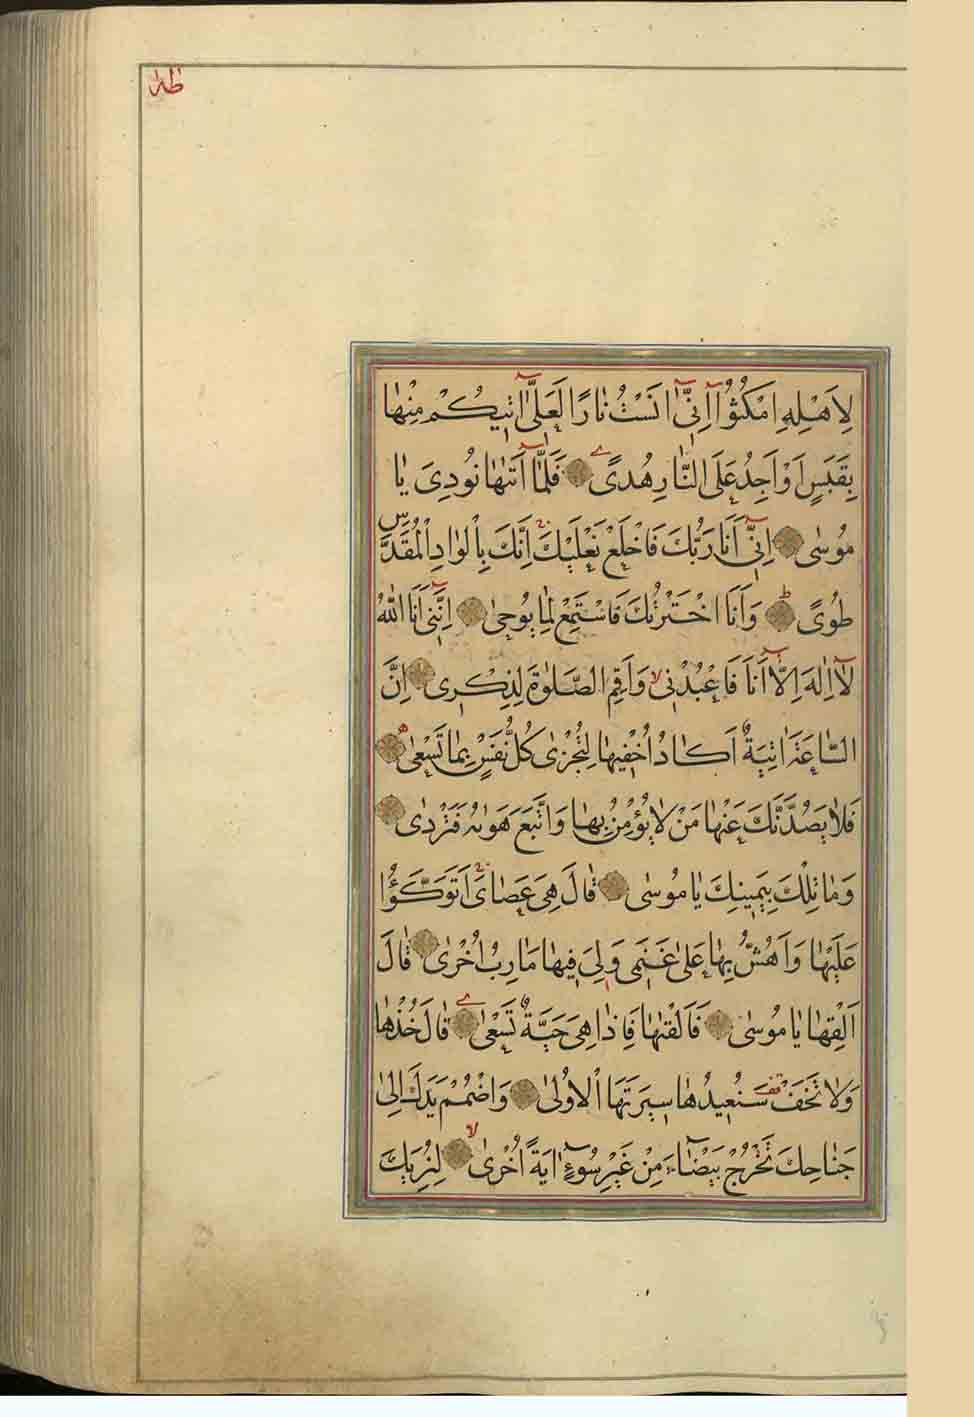 طه
لِاَهْلِهِ امْكُثُوٓا اِنِّىٓ اٰنَسْتُ نٰارًا لَعَلّٖىٓ اٰتٖيكُمْ مِنْهٰا
بِقَبَسٍ اَوْ اَجِدُ عَلَى النّٰارِ هُدًى ۞ فَلَمّٰٓا اَتٰىهٰا نُودِىَ يٰا
مُوسٰى ۞ اِنّٖىٓ اَنَا رَبُّكَ فَاخْلَعْ نَعْلَيْكَ ۚ اِنَّكَ بِالْوٰادِ الْمُقَدَّسِ
طُوًى ۞ وَاَنَا اخْتَرْتُكَ فَاسْتَمِعْ لِمٰا يُوحٰى ۞ اِنَّنٖىٓ اَنَا اللّٰهُ
لٰٓا اِلٰهَ اِلّٰٓا اَنَا۬ فَاعْبُدْنٖى ۙ وَاَقِمِ الصَّلٰوةَ لِذِكْرٖى ۞ اِنَّ
السّٰاعَةَ اٰتِيَةٌ اَكٰادُ اُخْفٖيهٰا لِتُجْزٰى كُلُّ نَفْسٍ بِمٰا تَسْعٰى ۞
فَلٰا يَصُدَّنَّكَ عَنْهٰا مَنْ لٰا يُؤْمِنُ بِهٰا وَاتَّبَعَ هَوٰىهُ فَتَرْدٰى ۞
وَمٰا تِلْكَ بِيَمٖينِكَ يٰا مُوسٰى ۞ قٰالَ هِىَ عَصٰاىَ ۚ اَتَوَكَّؤُا
عَلَيْهٰا وَاَهُشُّ بِهٰا عَلٰى غَنَمٖى وَلِىَ فٖيهٰا مَاٰرِبُ اُخْرٰى ۞ قٰالَ
اَلْقِهٰا يٰا مُوسٰى ۞ فَاَلْقٰىهٰا فَاِذٰا هِىَ حَيَّةٌ تَسْعٰى ۞ قٰالَ خُذْهٰا
وَلٰا تَخَفْ قف سَنُعٖيدُهٰا سٖيرَتَهَا الْاُولٰى ۞ وَاضْمُمْ يَدَكَ اِلٰى
جَنٰاحِكَ تَخْرُجْ بَيْضٰٓاءَ مِنْ غَيْرِ سُوٓءٍ اٰيَةً اُخْرٰى ۙ ۞ لِنُرِيَكَ